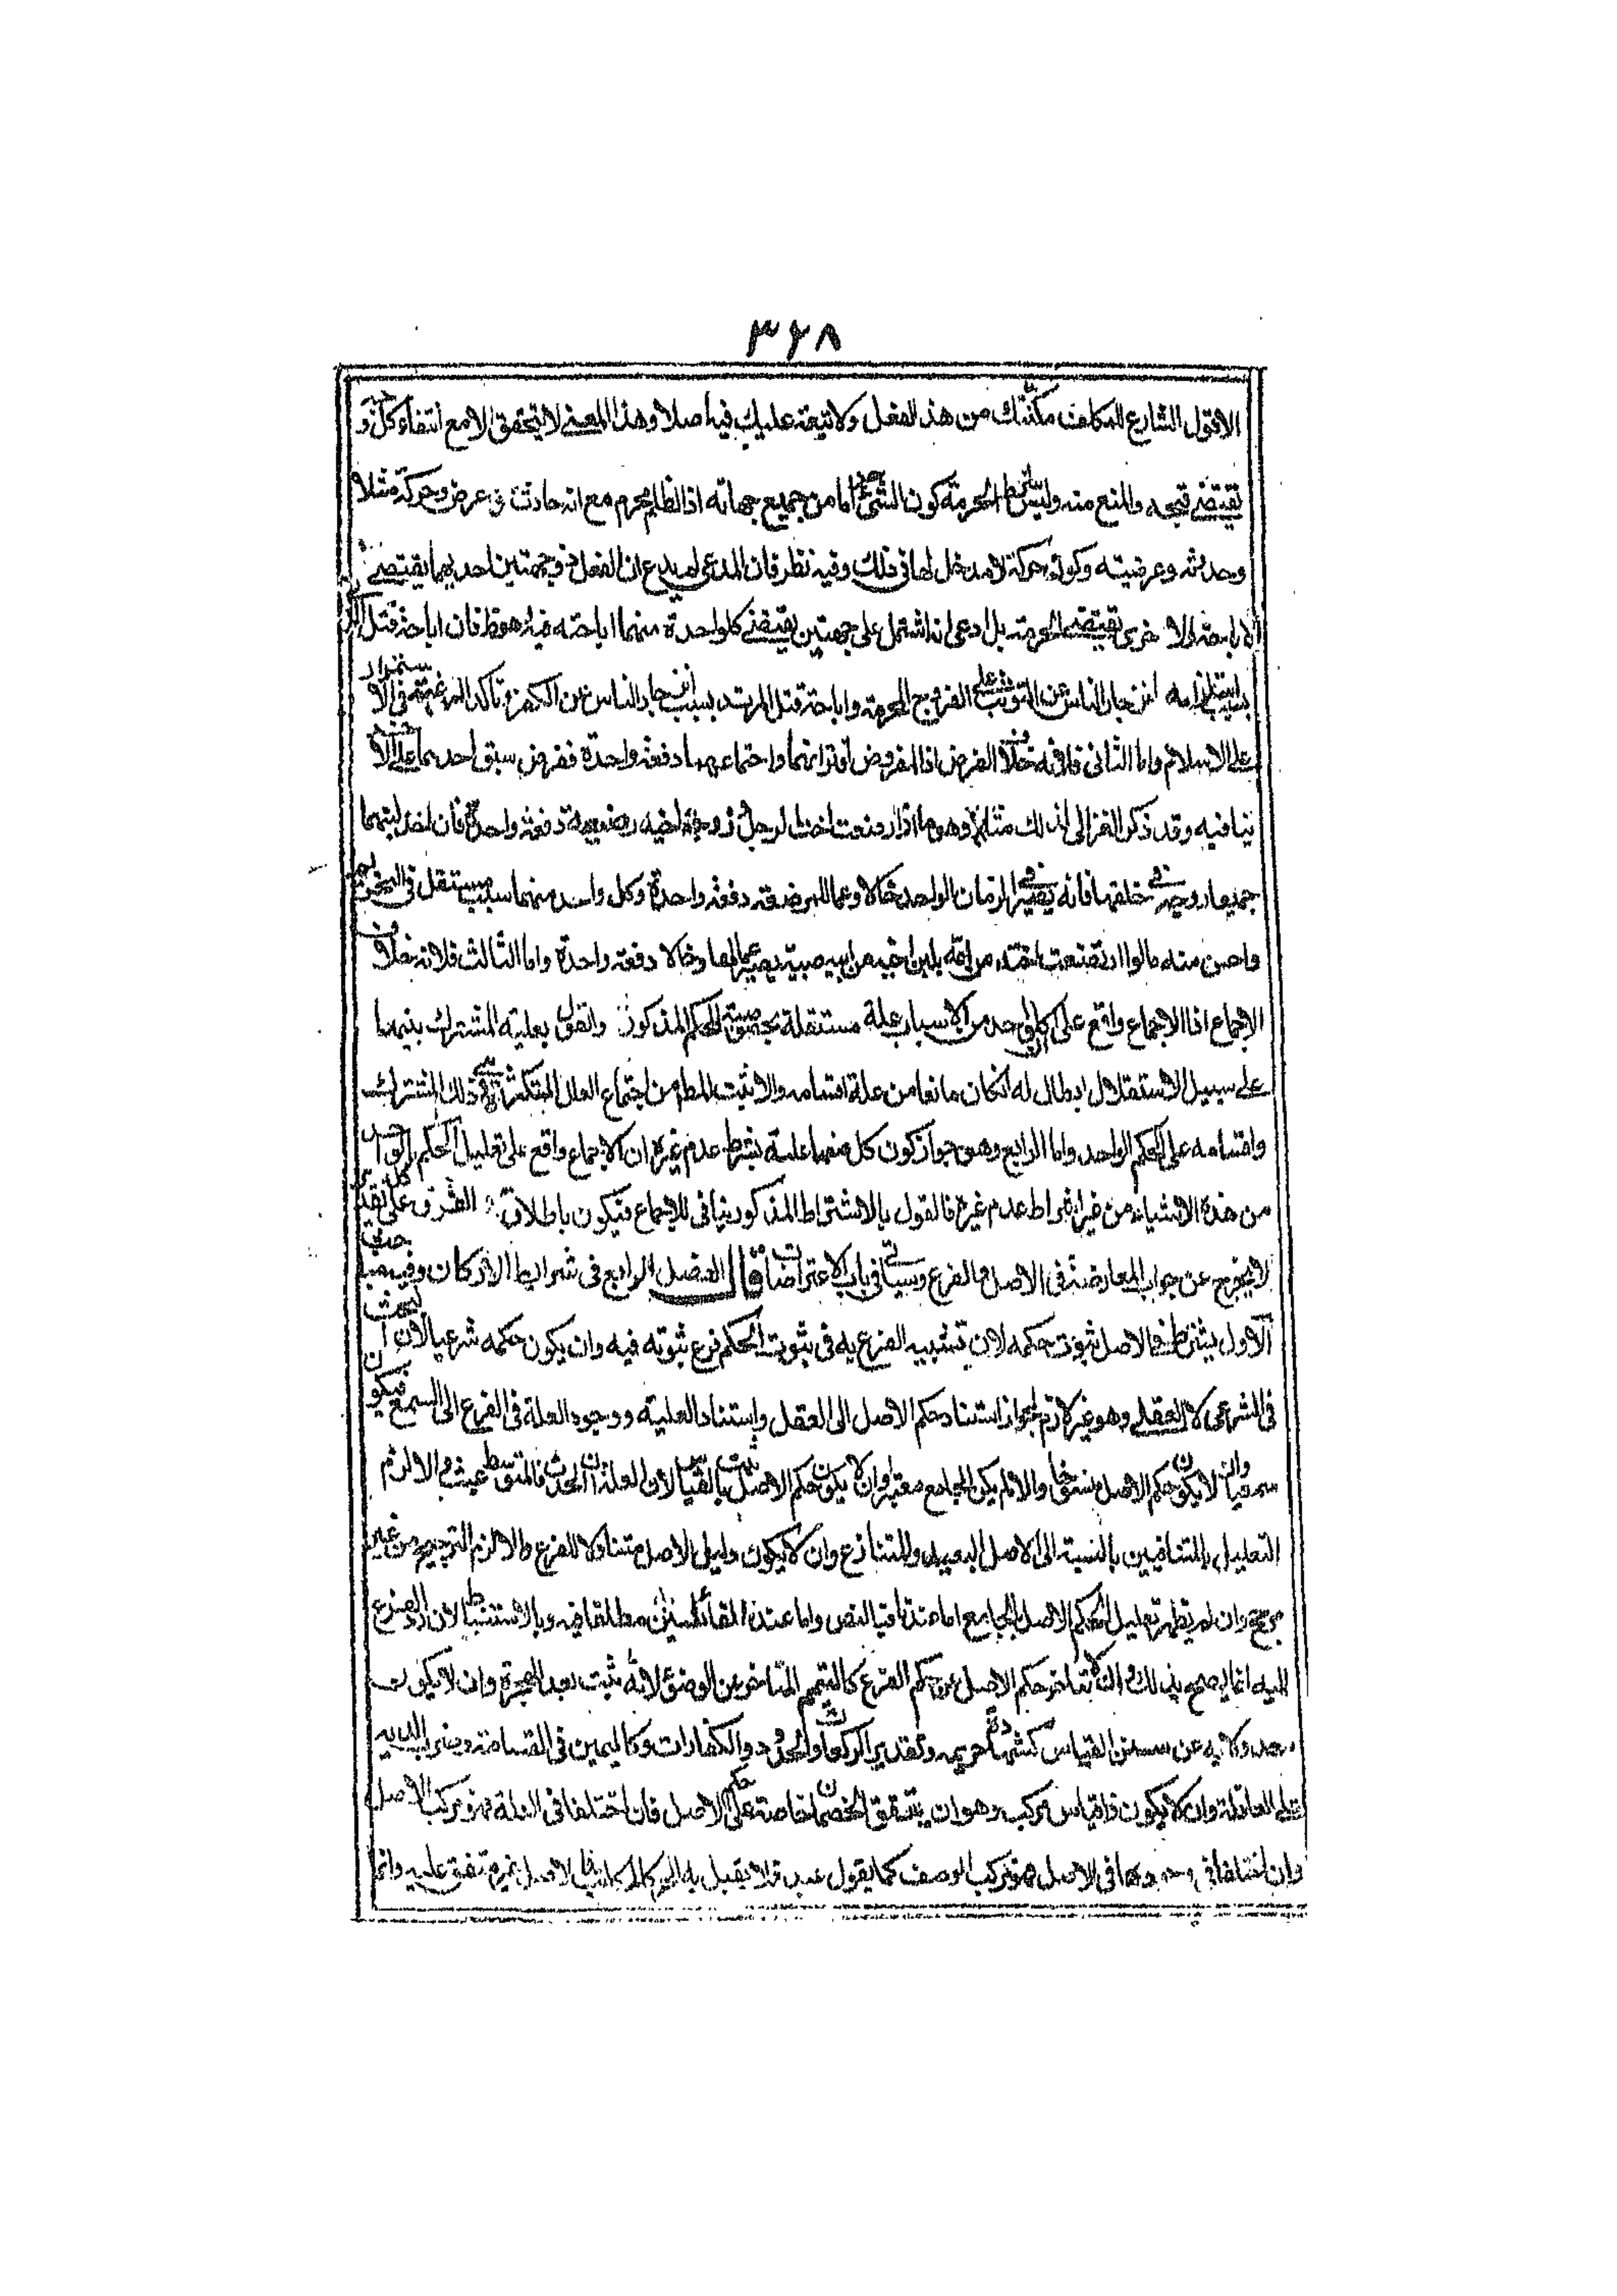 ٣٦٨
الا قول الشارع للمكلف مكنتك من هذا الفعل ولا تبعة عليك فيه اصلا وهذا المعنى لا يتحقق الا مع انتفاء كل وجه
يقتضى قبحه والمنع منه وليس شرط الحرمة كون الشئ حراما من جميع جهاته اذ الظلم محرم مع انه حادث وعرض وحركة مثلا
وحدوثه وعرضيته وكونه حركة لا مدخل لها فى ذلك وفيه نظر فان المدعى لم يدع ان الفعل ذو جهتين احديهما يقتضى
الاباحة والاخرى يقتضى الحرمة بل ادعى انه اشتمل على جهتين يقتضى كل واحدة منهما اباحته فيه وهو ظ فان اباحة قتل الزانى
باستلزامه انزجار الناس عن التوثب على الفروج المحرمة واباحة قتل المرتد بسبب انزجار الناس عن الكفر وتأكد الرغبة فى الاستمرار
على الاسلام واما الثانى فلانه خلاف الفرض اذ المفروض اقترانهما واجتماعهما دفعة واحدة ففرض سبق احدهما على الاخر
ينافيه وقد ذكر الغزالى لذلك مثالا وهو ما اذا ارضعت اخت لرجل وزوجة اخيه رضيعة دفعة واحدة فان اخذ لبنهما
جميعا ووجد فى حلقها فانه يصير فى الزمان الواحد خالا وعما للمرضعة دفعة واحدة وكل واحد منهما سبب مستقل فى التحريم
واحسن منه ما لو ارتضعت من امه بلبن اخيه من ابيه صبية يصير عما لها وخالا دفعة واحدة واما الثالث فلانه خلاف
الاجماع اذ الاجماع واقع على ان كل واحد من الاسباب علة مستقلة بخصوصيته للحكم المذكور والقول بعلية المشترك بينهما
على سبيل الاستقلال ابطال له ان كان مانعا من علة اقسامه والا ثبت المط من اجتماع العلل المتكثرة هى ذلك المشترك
واقسامه على الحكم الواحد واما الرابع وهو جواز كون كل منهما علة بشرط عدم غيره ان الاجماع واقع على تعليل الحكم بكل واحد
من هذه الاشياء من غير اشتراط عدم غيره فالقول بالاشتراط المذكور ينافى للاجماع فيكون باطلا قوله الفرق على تقدير
لا يخرج عن جواب المعارضة فى الاصل والفرع وسيأتى فى باب الاعتراضات قال الفصل الرابع فى شرايط الاركان وفيه مباحث
الاول يشترط فى الاصل ثبوت حكمه لان تشبيه الفرع به فى ثبوت الحكم فرع ثبوته فيه وان يكون حكمه شرعيا لان البحث
فى الشرعى لا العقلى وهو غير لازم لجواز استناد حكم الاصل الى العقل واستناد العلية ووجود العلة فى الفرع الى السمع فيكون
سمعيا وان لا يكون حكم الاصل منسوخا والا لم يكن الجامع معتبرا وان لا يكون حكم الاصل ثبت بالقياس لان العلة ان اتحدت فالمتوسط عبث والا لزم
التعليل بالمتنافيين بالنسبة الى الاصل البعيد والمتنازع وان لا يكون دليل الاصل متناولا للفرع والا لزم الترجيح من غير
مرجح وان لم يظهر تعليل الحكم الاصل بالجامع اما عندنا فبالنص واما عند القائسين مطلقا فبه وبالاستنباط لان رد الفرع
اليه انما يصح بذلك وان لا يتأخر حكم الاصل عن حكم الفرع كالتيمم المتأخر عن الوضوء لانه ثبت بعد الهجرة وان لا يكون
معدولا به عن سنن القياس كشهادة خزيمة وتقدير الركعات والحدود والكفارات وكاليمين فى القسامة وضرب الدية
على العاقلة وان لا يكون ذا قياس مركب وهو ان يتفق الخصمان خاصة على حكم الاصل فان اختلفا فى العلة فهو مركب الاصل
وان اختلفا فى وجودها فى الاصل فهو مركب الوصف كما يقول عبد فلا يقتل به الحر كالمكاتب فالاصل غير متفق عليه وانما